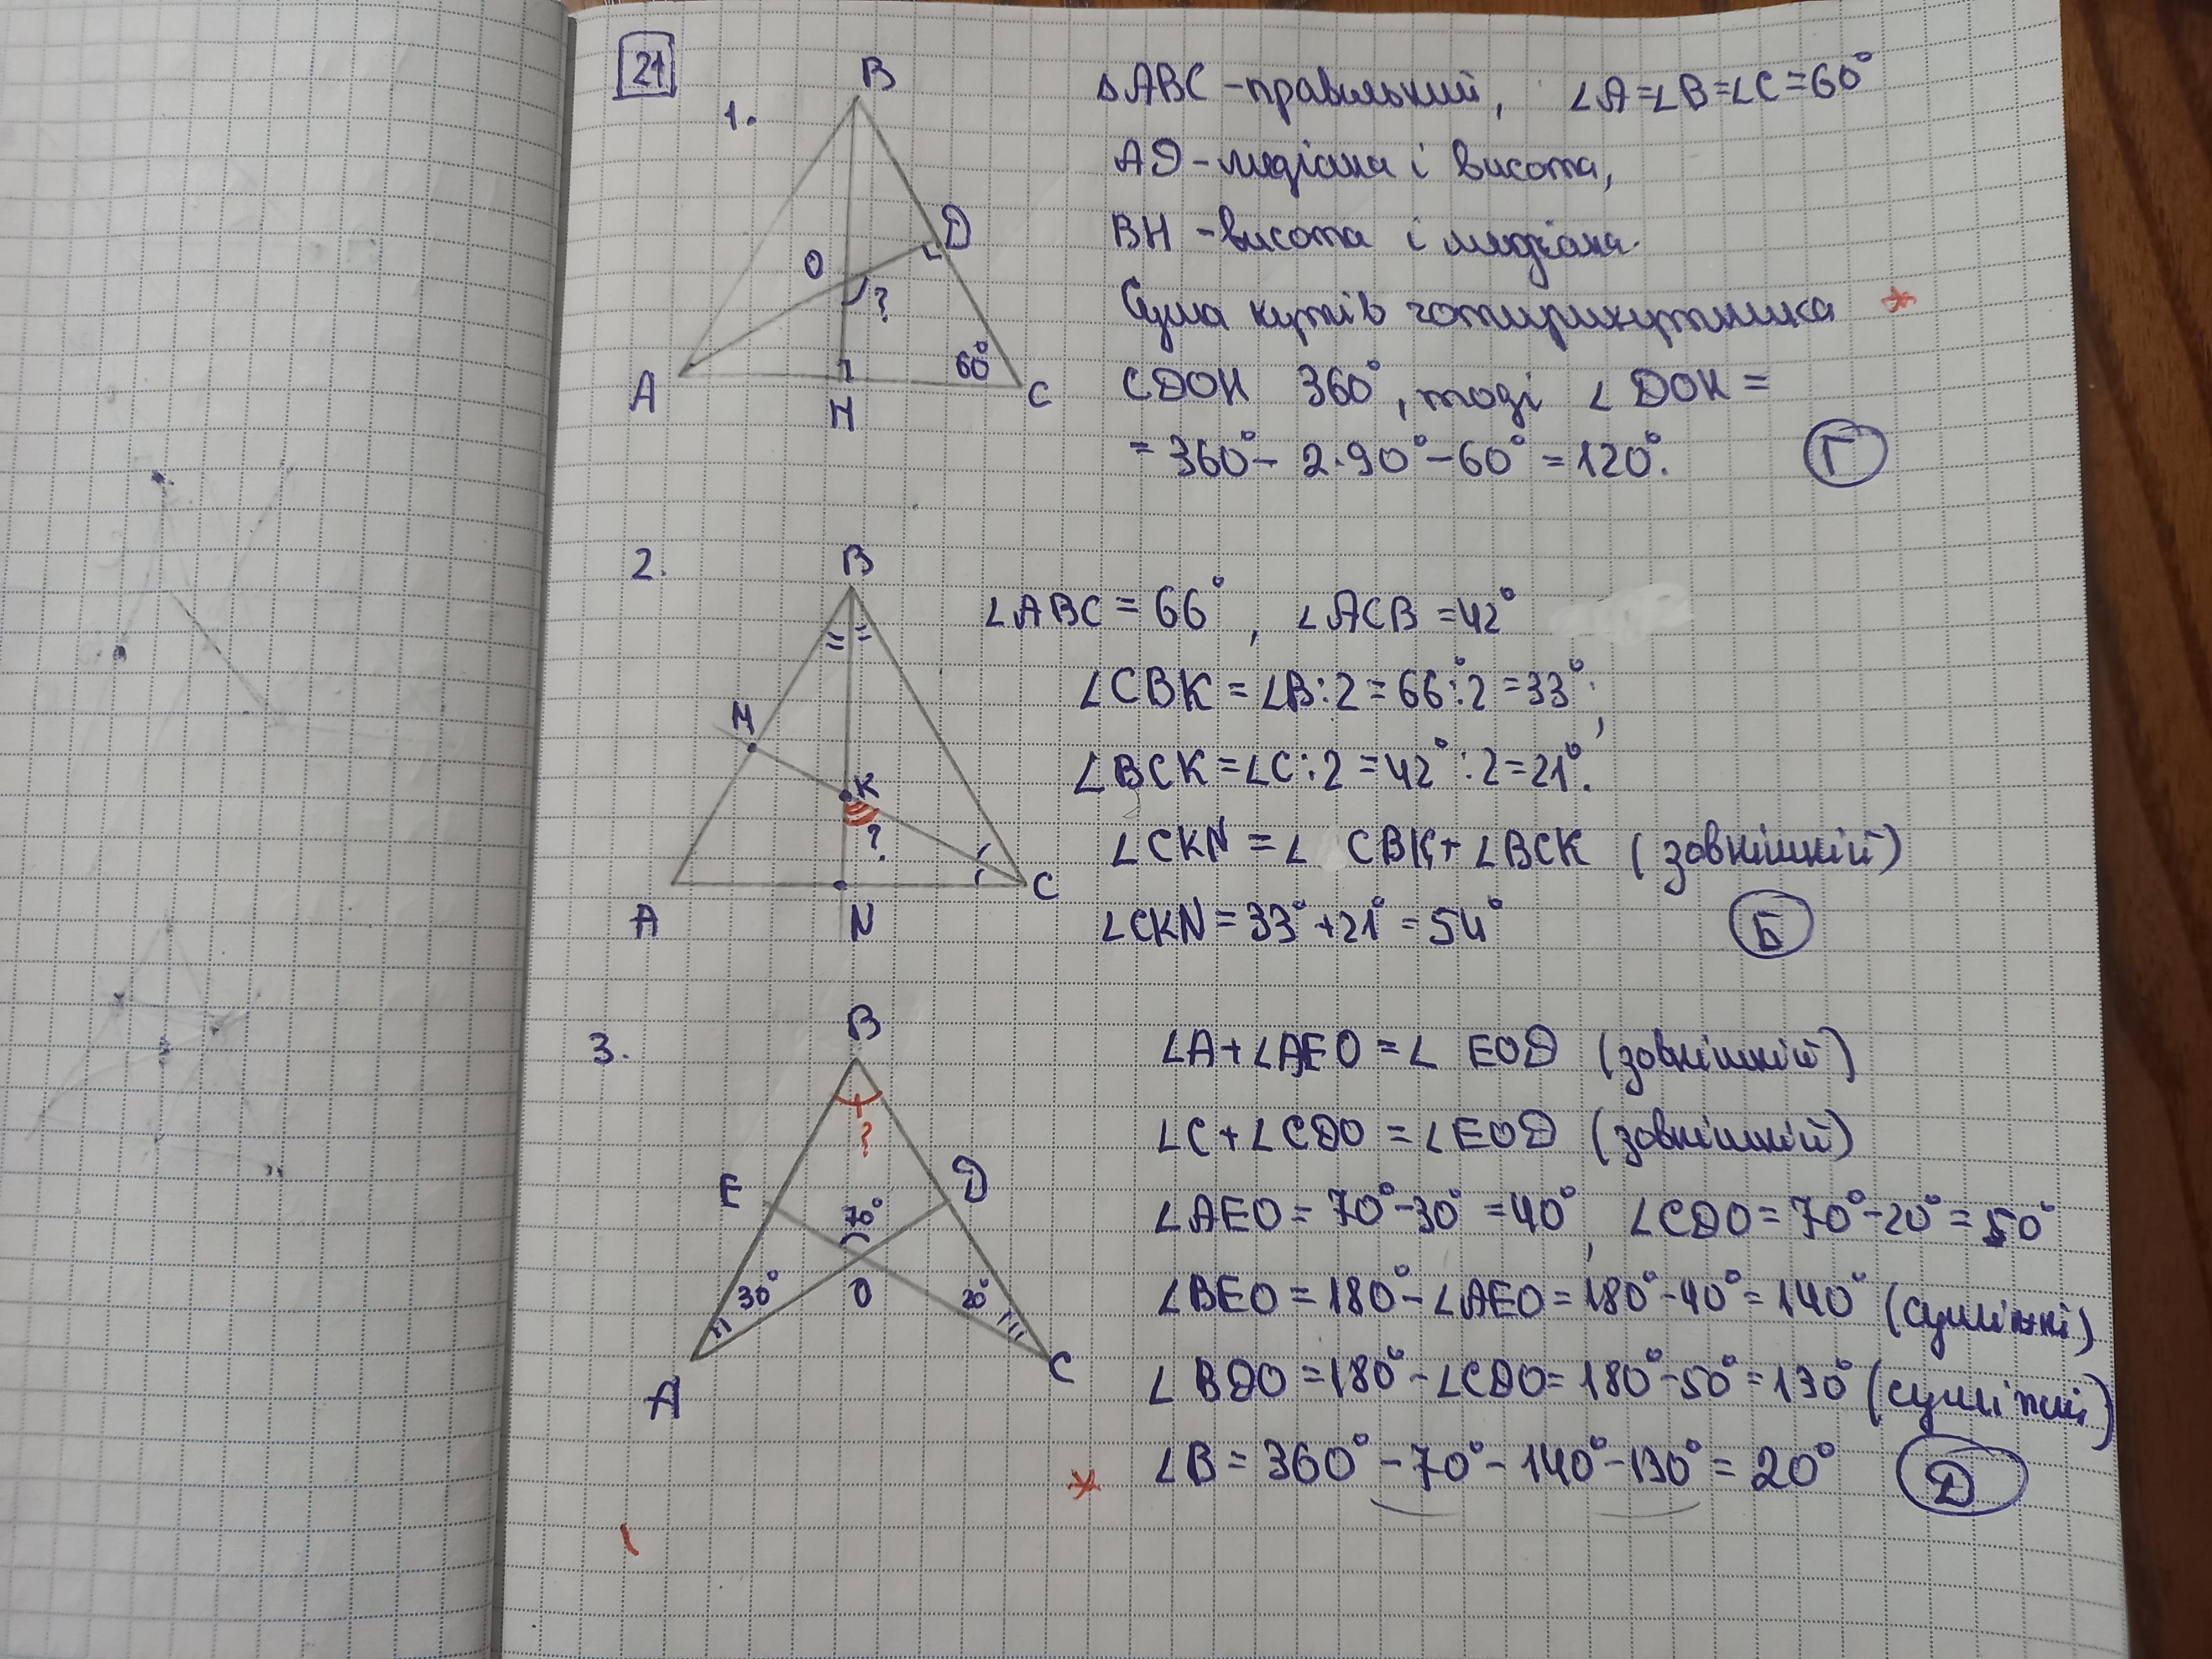 21
1.
B
D
O
?
60°
A
H
C
△ABC - правильний, ∠A=∠B=∠C=60°
AD - медіана і висота,
BH - висота і медіана.
Сума кутів чотирикутника *
CDOH 360°, тоді ∠DOH =
= 360° - 2·90° - 60° = 120°. Г
2.
B
M
K
?
A
N
C
∠ABC = 66°, ∠ACB = 42°
∠CBK = ∠B:2 = 66°:2 = 33°;
∠BCK = ∠C:2 = 42°:2 = 21°.
∠CKN = ∠ CBK + ∠BCK (зовнішній)
∠CKN = 33° + 21° = 54° Б
3.
B
?
E
D
70°
30°
O
20°
A
C
∠A + ∠AEO = ∠ EOD (зовнішній)
∠C + ∠CDO = ∠EOD (зовнішній)
∠AEO = 70° - 30° = 40°, ∠CDO = 70° - 20° = 50°
∠BEO = 180° - ∠AEO = 180° - 40° = 140° (суміжні)
∠BDO = 180° - ∠CDO = 180° - 50° = 130° (суміжні)
* ∠B = 360° - 70° - 140° - 130° = 20° Д